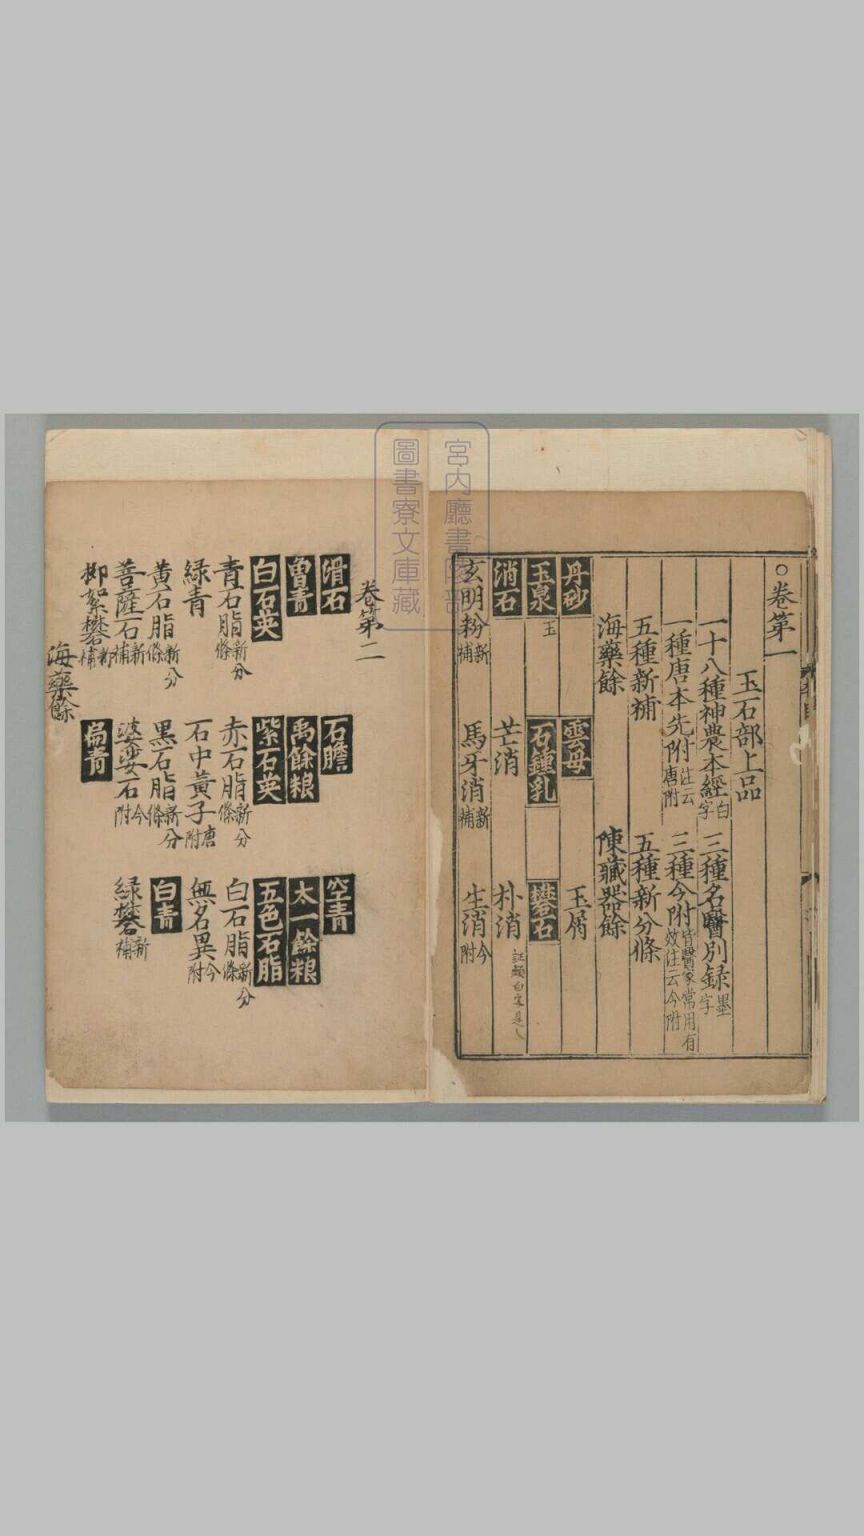 ○卷第一
玉石部上品
一十八種神農本經白字 三種名醫別録墨字
一種唐本先附注云唐附 三種今附皆醫家常用有效注云今附
五種新補 五種新分條
海藥餘 陳藏器餘
丹砂 雲母 玉屑
玉泉玉 石鍾乳 礬石
消石 芒消 朴消
玄明粉新補 馬牙消新補 生消今附
卷第二
滑石 石膽 空青
曾青 禹餘粮 太一餘粮
白石英 紫石英 五色石脂
青石脂新分條 赤石脂新分條 白石脂新分條
緑青 石中黃子唐附 無名異今附
黃石脂新分條 黑石脂新分條 白青
菩薩石新補 婆娑石今附 緑礬新補
柳絮礬新補 扁青
海藥餘
宮内廳書陵部
圖書寮文庫藏